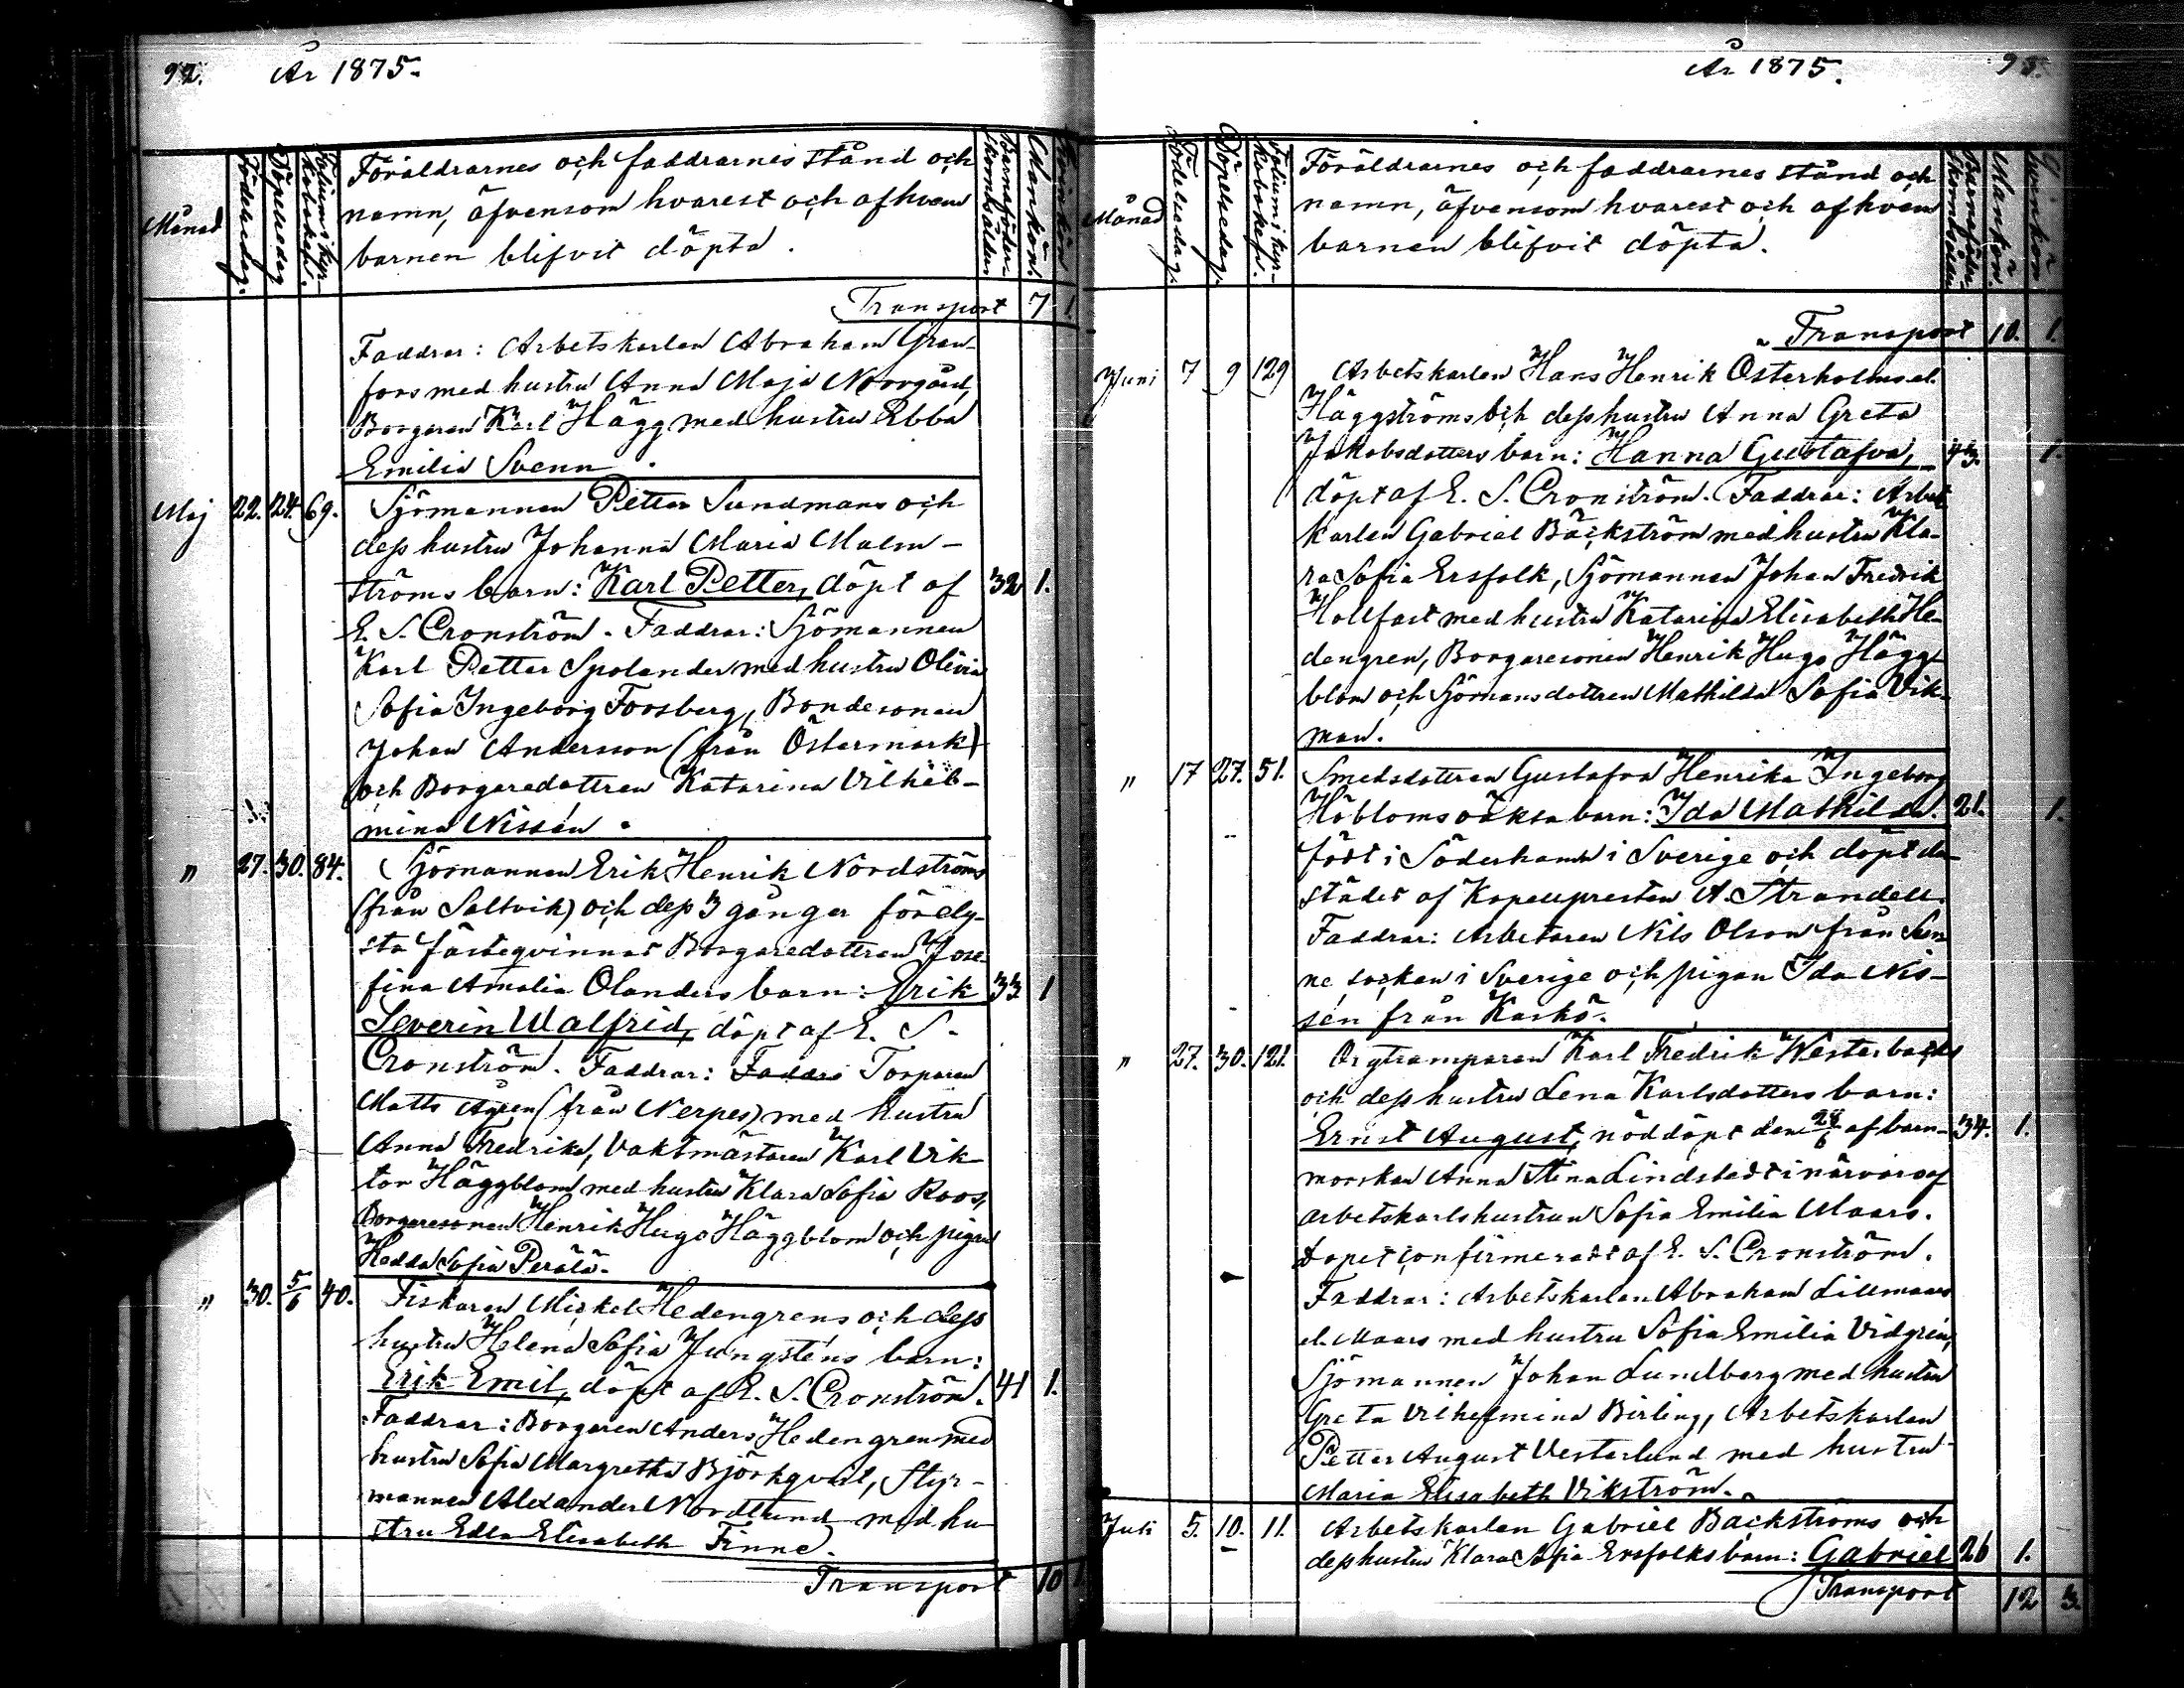 92. År 1875.
Månad
Födelsedag.
Döpelsedag
Folium i kyr-
koboken.
Föräldrarnes och faddrarnes stånd och
namn, äfvensom hvarest och af hvem
barnen blifvit döpta.
Barnaföder-
skornas ålder
Mankön.
Qvinkön
Transport 7 1
Faddrar: Arbetskarlen Abraham Gran-
fors med hustru Anna Maja Norrgård,
Borgaren Karl Hägg med hustru Ebba
Emilia Svenn.
Maj 22. 24. 69. Sjömannen Petter Sundmans och
dess hustru Johanna Maria Malm-
ströms barn: Karl Petter, döpt af 32 1.
E. S. Cronström. Faddrar: Sjömannen
Karl Petter Spolander med hustru Olivia
Sofia Ingeborg Forsberg, Bondesonen
Johan Andersson (från Östermark)
och Borgaredottren Katarina Vilhel-
mina Nissén.
" 27. 30. 84. Sjömannen Erik Henrik Nordströms
(från Saltvik) och dess 3 gånger förely-
sta fästeqvinnas Borgaredottren Jose-
fina Amalia Olanders barn: Erik 33 1
Severin Walfrid, döpt af E. S.
Cronström. Faddrar: Faddra Torparen
Matts Ågren (från Nerpes) med hustru
Anna Fredrika, Vaktmästaren Karl Vik-
tor Häggblom med hustru Klara Sofia Roos,
Borgaresonen Henrik Hugo Häggblom och pigan
Hedda Sofia Perälä.
" 30. 5/6 40. Fiskaren Mickel Hedengrens och dess
hustru Helena Sofia Jungsténs barn:
Erik Emil, döpt af E. S. Cronström. 41 1.
Faddrar: Borgaren Anders Hedengren med
hustru Sofia Margretha Björkqvist, Styr-
mannen Alexander Nordlund med hu-
stru Edla Elisabeth Finne.
Transport 10 1.
År 1875. 93.
Månad
Födelsedag.
Döpelsedag.
Folium i kyr-
koboken.
Föräldrarnes och faddrarnes stånd och
namn, äfvensom hvarest och af hvem
barnen blifvit döpta.
Barnaföder-
skornas ålder
Mankön.
Qvinkön
Transport 10. 1.
Juni 7 9 129 Arbetskarlen Hans Henrik Österholms el.
Häggströms och dess hustru Anna Greta
Jakobsdotters barn: Hanna Gustafva, 43. 1.
döpt af E. S. Cronström. Faddrar: Arbets
karlen Gabriel Bäckström med hustru Kla-
ra Sofia Ersfolk, Sjömannen Johan Fredrik
Hollfast med hustru Katarina Elisabeth He-
dengren, Borgaresonen Henrik Hugo Hägg-
blom och Sjömansdottren Mathilda Sofia Vik-
man.
" 17 27. 51. Smedsdottren Gustafva Henrika Ingeborg
Höbloms oäkta barn: Ida Mathilda. 21. 1.
född i Söderhamn i Sverige och döpt da-
städes af Kapellpresten A. Strandell.
Faddrar: Arbetaren Nils Olson från Sun-
ne socken i Sverige och pigan Ida Nis-
sén från Kaskö.
" 27. 30. 121. Orgtramparen Karl Fredrik Westerbacks
och dess hustru Lena Karlsdotters barn:
Ernst August, nöddöpt den 28/6 af barn- 34. 1.
morskan Anna Stina Lindstedt i närvaro af
arbetskarlshustrun Sofia Emilia Maars.
Dopet confirmeradt af E. S. Cronström.
Faddrar: Arbetskarlen Abraham Lillmaars
el. Maars med hustru Sofia Emilia Vidgrén,
Sjömannen Johan Lundberg med hustru
Greta Vilhelmina Birling, Arbetskarlen
Petter August Vesterlund med hustru
Maria Elisabeth Vikström.
Juli 5. 10. 11. Arbetskarlen Gabriel Bäckströms och
dess hustru Klara Sofia Ersfolks barn: Gabriel 26 1.
Transport 12 3.